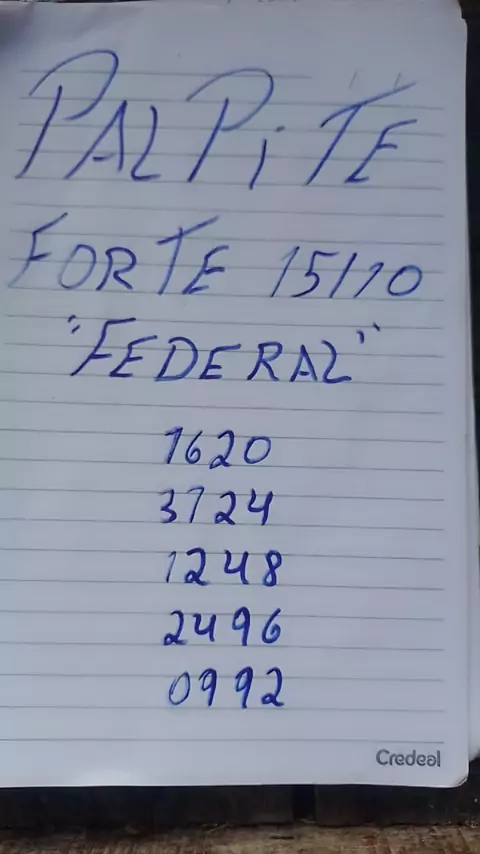 PALPiTE
FORTE 15/10
"FEDERAL"
1620
3124
1248
2496
0992
Credeal